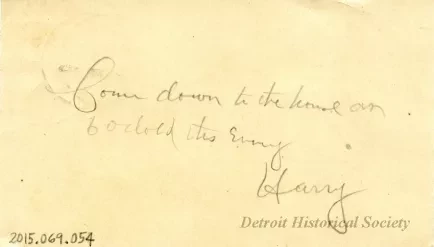 Come down to the house on
6 oclock this Evng
Harry
Detroit Historical Society
2015.069.054